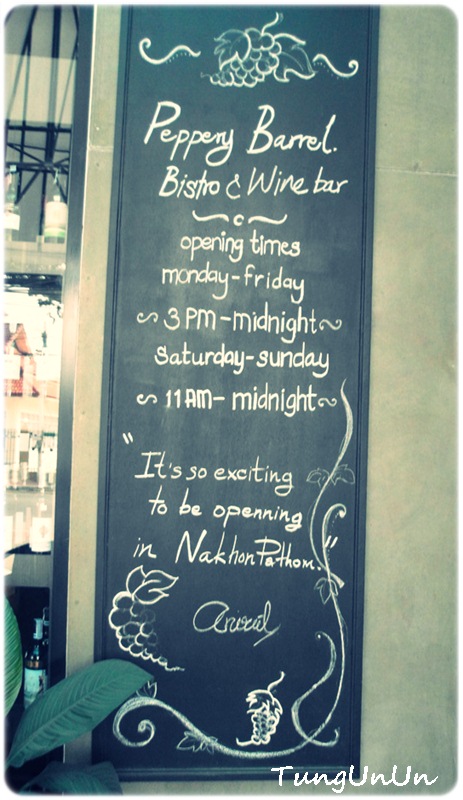 Peppery Barrel.
Bistro & Wine bar
opening times
monday-friday
3 PM-midnight
saturday-sunday
11 AM- midnight
"It's so exciting
to be openning
in NakhonPathom."
TungUnUn